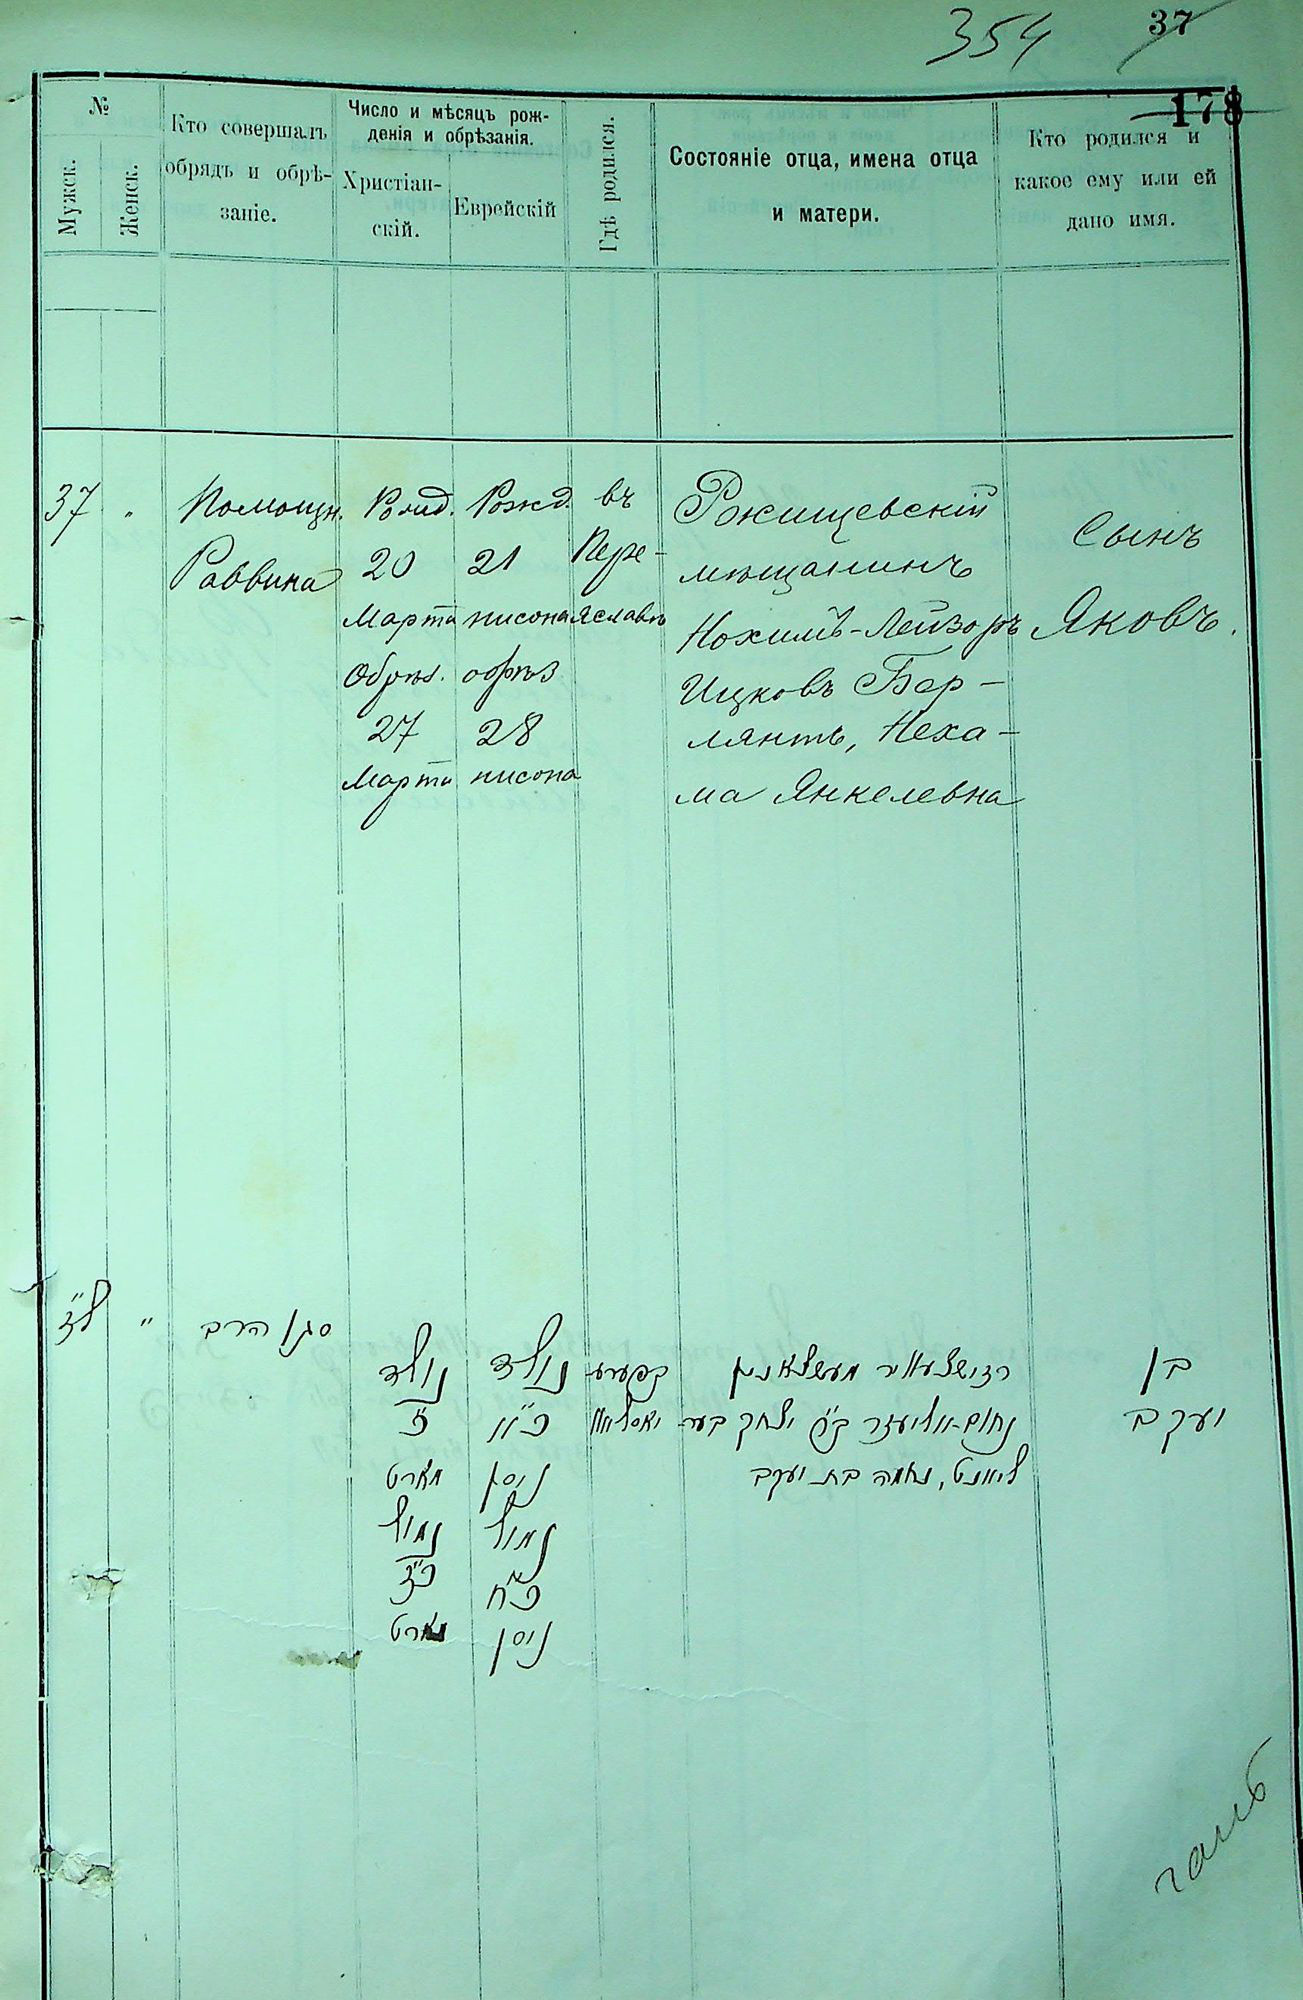 354
37
178
№
Мужск.
Женск.
Кто совершалъ
обрядъ и обрѣ-
заніе.
Число и мѣсяцъ рож-
денія и обрѣзанія.
Христіан-
скій.
Еврейскій
Гдѣ родился.
Состояніе отца, имена отца
и матери.
Кто родился и
какое ему или ей
дано имя.
37 "
Помощн.
Раввина
Рожд.
20
Марта
Обрѣз.
27
Марта
Рожд.
21
нисона
обрѣз
28
нисона
въ
Пере-
яславѣ
Рокищевскій
мѣщанинъ
Нохимъ-Лейзоръ
Ицковъ Бер-
лянтъ, Неха-
ма Янкелевна
Сынъ
Яковъ.
ל"ז "
סגן הרב
נולד
כ'
מארט
נמול
כ"ז
מארט
נולד
כ"א
ניסן
נמול
כ"ח
ניסן
מעשצאנין
נחום-אליעזר ב"ר יצחק בער-
ליאנט, נחמה בת יעקב
בן
יעקב